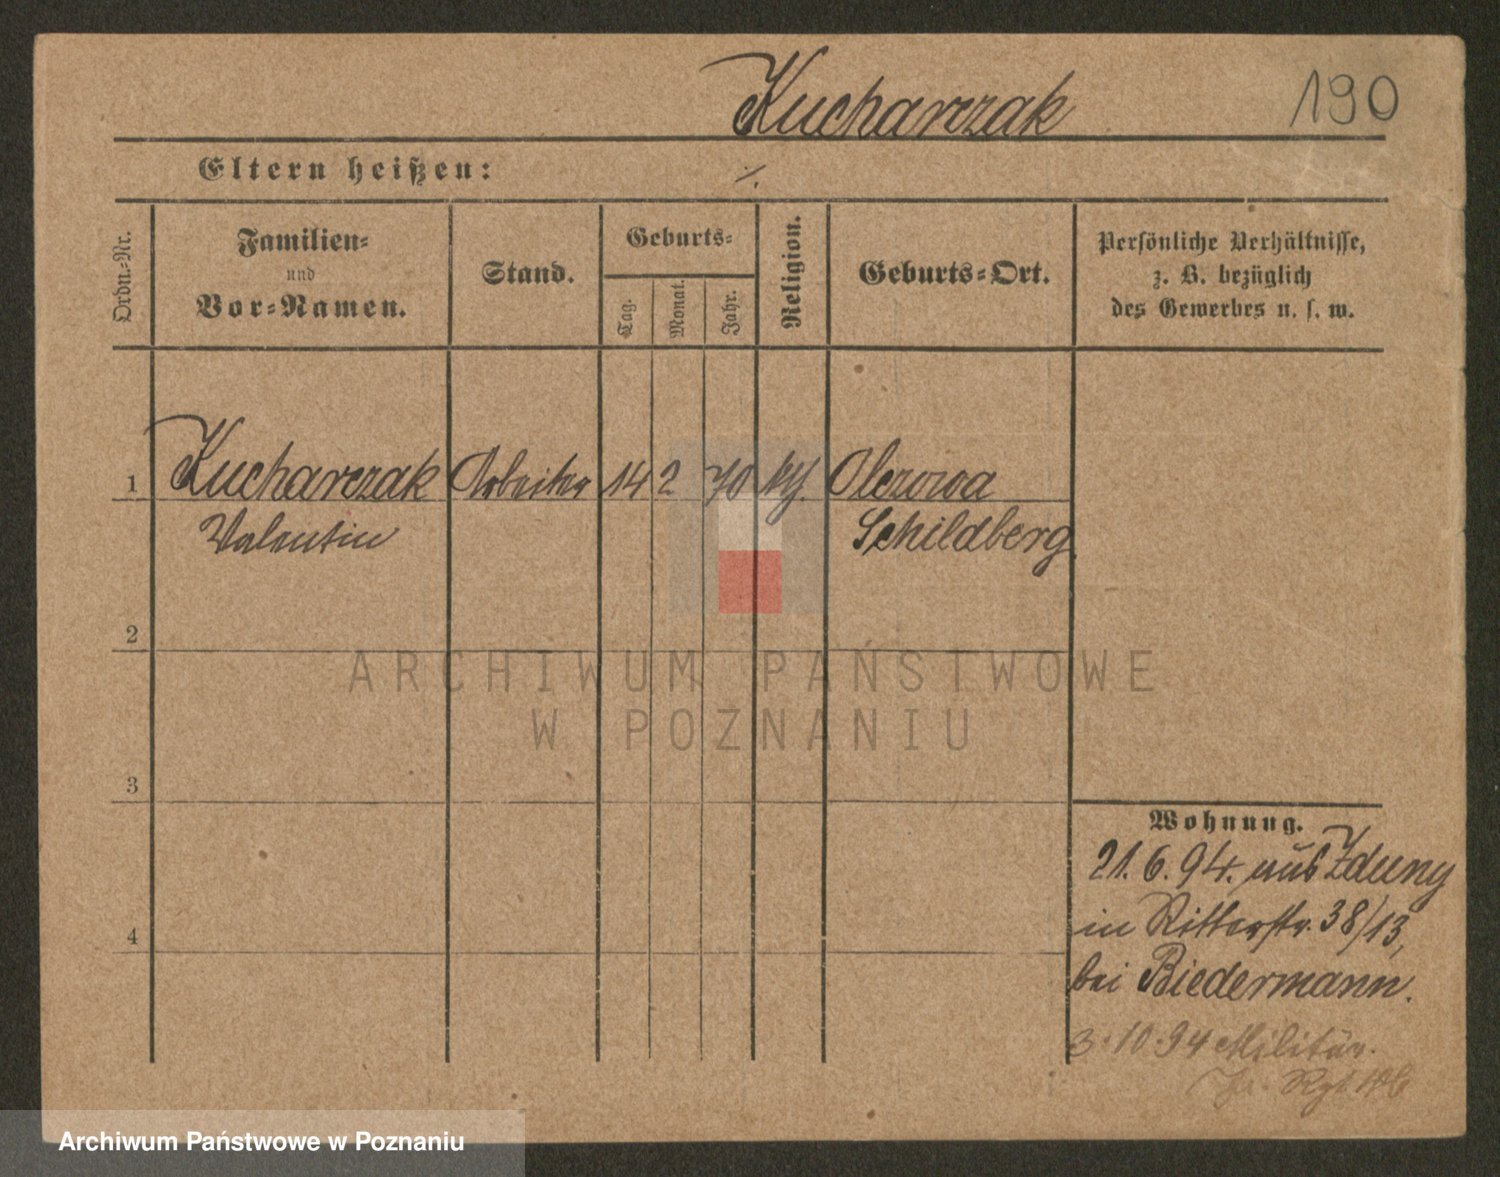 Kucharczak 190
Eltern heißen: ⁒
Ordn.-Nr.
Familien-
und
Vor-Namen.
Stand.
Geburts-
Tag.
Monat.
Jahr.
Religion.
Geburts-Ort.
Persönliche Verhältnisse,
z. B. bezüglich
des Gewerbes u. s. w.
1 Kucharczak Arbeiter 14 2 70 kth. Olszowa
Valentin Schildberg
2
ARCHIWUM PAŃSTWOWE
W POZNANIU
3
Wohnung.
21.6.94. aus Zduny
4 in Ritterstr. 38/13,
bei Biedermann.
3.10.94 Militär.
Rgt.
Archiwum Państwowe w Poznaniu